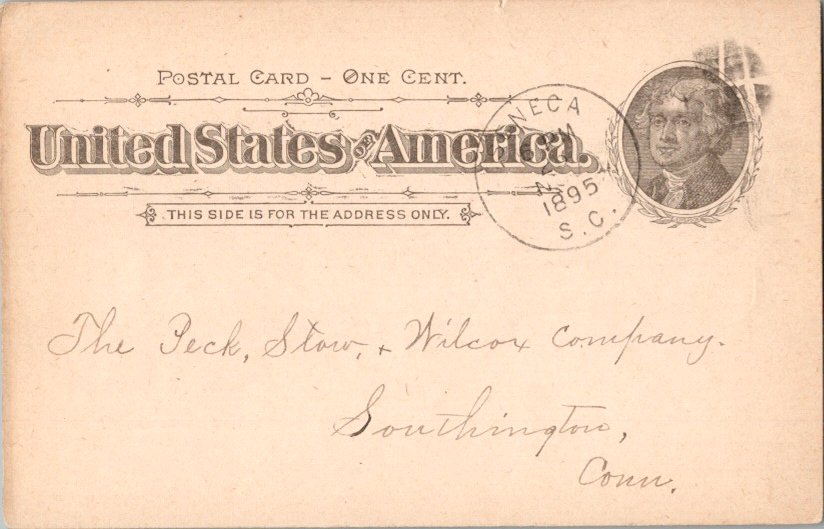 POSTAL CARD – ONE CENT.
United States OF America.
THIS SIDE IS FOR THE ADDRESS ONLY.
SENECA
1895
S.C.
The Peck, Stow, + Wilcox Company.
Southington,
Conn.